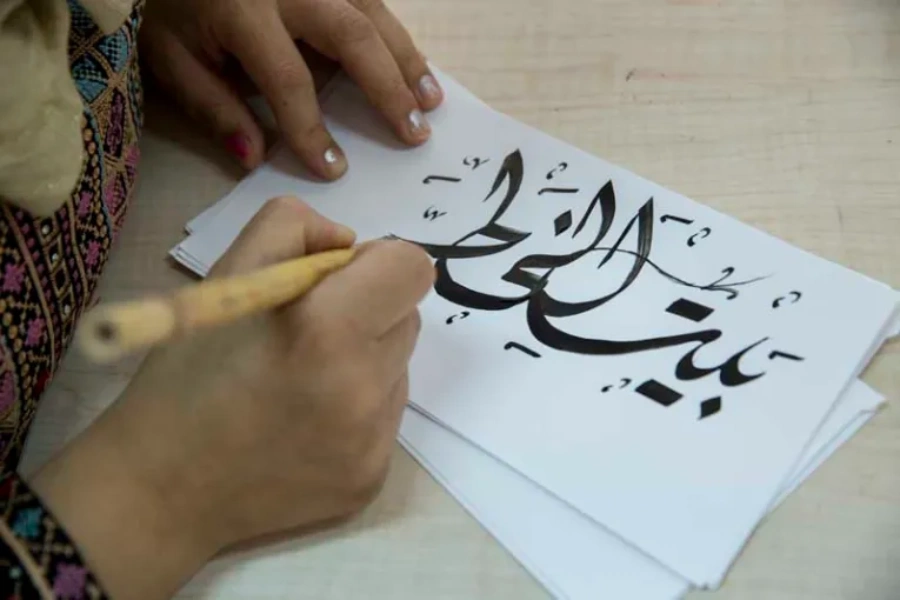 بيت الخط